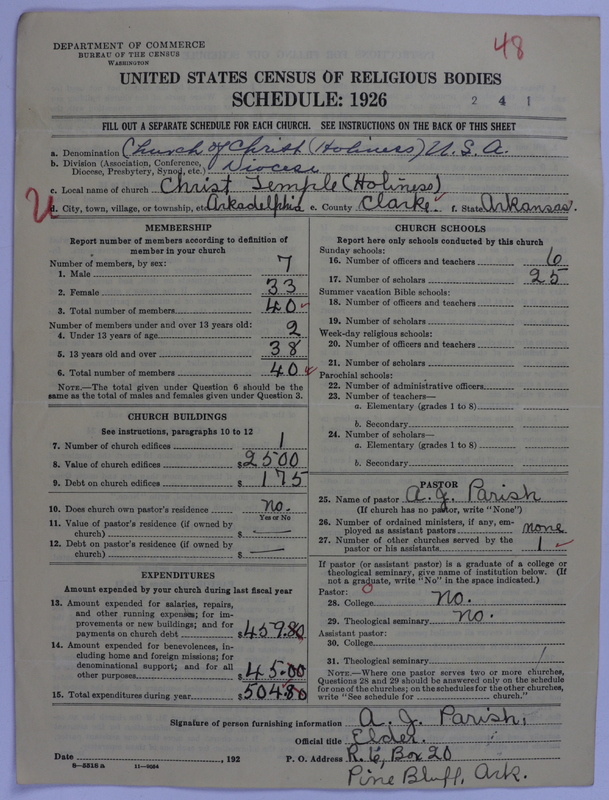 DEPARTMENT OF COMMERCE
BUREAU OF THE CENSUS
WASHINGTON
48
UNITED STATES CENSUS OF RELIGIOUS BODIES
SCHEDULE: 1926
2 4 1
FILL OUT A SEPARATE SCHEDULE FOR EACH CHURCH. SEE INSTRUCTIONS ON THE BACK OF THIS SHEET
a. Denomination Church of Christ (Holiness) U.S.A.
b. Division (Association, Conference, Diocese, Presbytery, Synod, etc.) Diocese
c. Local name of church Christ Temple (Holiness)
d. City, town, village, or township, etc. Arkadelphia e. County Clarke. f. State Arkansas.
MEMBERSHIP
Report number of members according to definition of
member in your church
Number of members, by sex:
1. Male 7
2. Female 33
3. Total number of members 40
Number of members under and over 13 years old:
4. Under 13 years of age 2
5. 13 years old and over 38
6. Total number of members 40
NOTE.—The total given under Question 6 should be the
same as the total of males and females given under Question 3.
CHURCH BUILDINGS
See instructions, paragraphs 10 to 12
7. Number of church edifices 1
8. Value of church edifices $2500
9. Debt on church edifices $ 175
10. Does church own pastor's residence no.
Yes or No
11. Value of pastor's residence (if owned by
church) $ —
12. Debt on pastor's residence (if owned by
church) $ —
EXPENDITURES
Amount expended by your church during last fiscal year
13. Amount expended for salaries, repairs,
and other running expenses; for im-
provements or new buildings; and for
payments on church debt $459.80
14. Amount expended for benevolences, in-
cluding home and foreign missions; for
denominational support; and for all
other purposes $45.00
15. Total expenditures during year $504.80
CHURCH SCHOOLS
Report here only schools conducted by this church
Sunday schools:
16. Number of officers and teachers 6
17. Number of scholars 25
Summer vacation Bible schools:
18. Number of officers and teachers
19. Number of scholars
Week-day religious schools:
20. Number of officers and teachers
21. Number of scholars
Parochial schools:
22. Number of administrative officers
23. Number of teachers—
a. Elementary (grades 1 to 8)
b. Secondary
24. Number of scholars—
a. Elementary (grades 1 to 8)
b. Secondary
PASTOR
25. Name of pastor A. J. Parish
(If church has no pastor, write "None")
26. Number of ordained ministers, if any, em-
ployed as assistant pastors none
27. Number of other churches served by the
pastor or his assistants 1
If pastor (or assistant pastor) is a graduate of a college or
theological seminary, give name of institution below. (If
not a graduate, write "No" in the space indicated.)
Pastor: 0
28. College no.
29. Theological seminary no.
Assistant pastor:
30. College
31. Theological seminary
NOTE.—Where one pastor serves two or more churches,
Questions 28 and 29 should be answered only on the schedule
for one of the churches; on the schedules for the other churches,
write "See schedule for ______ church."
Signature of person furnishing information A. J. Parish,
Official title Elder.
Date , 192 P. O. Address R. 6, Box 20
8—5316 a 11—9064
Pine Bluff, Ark.